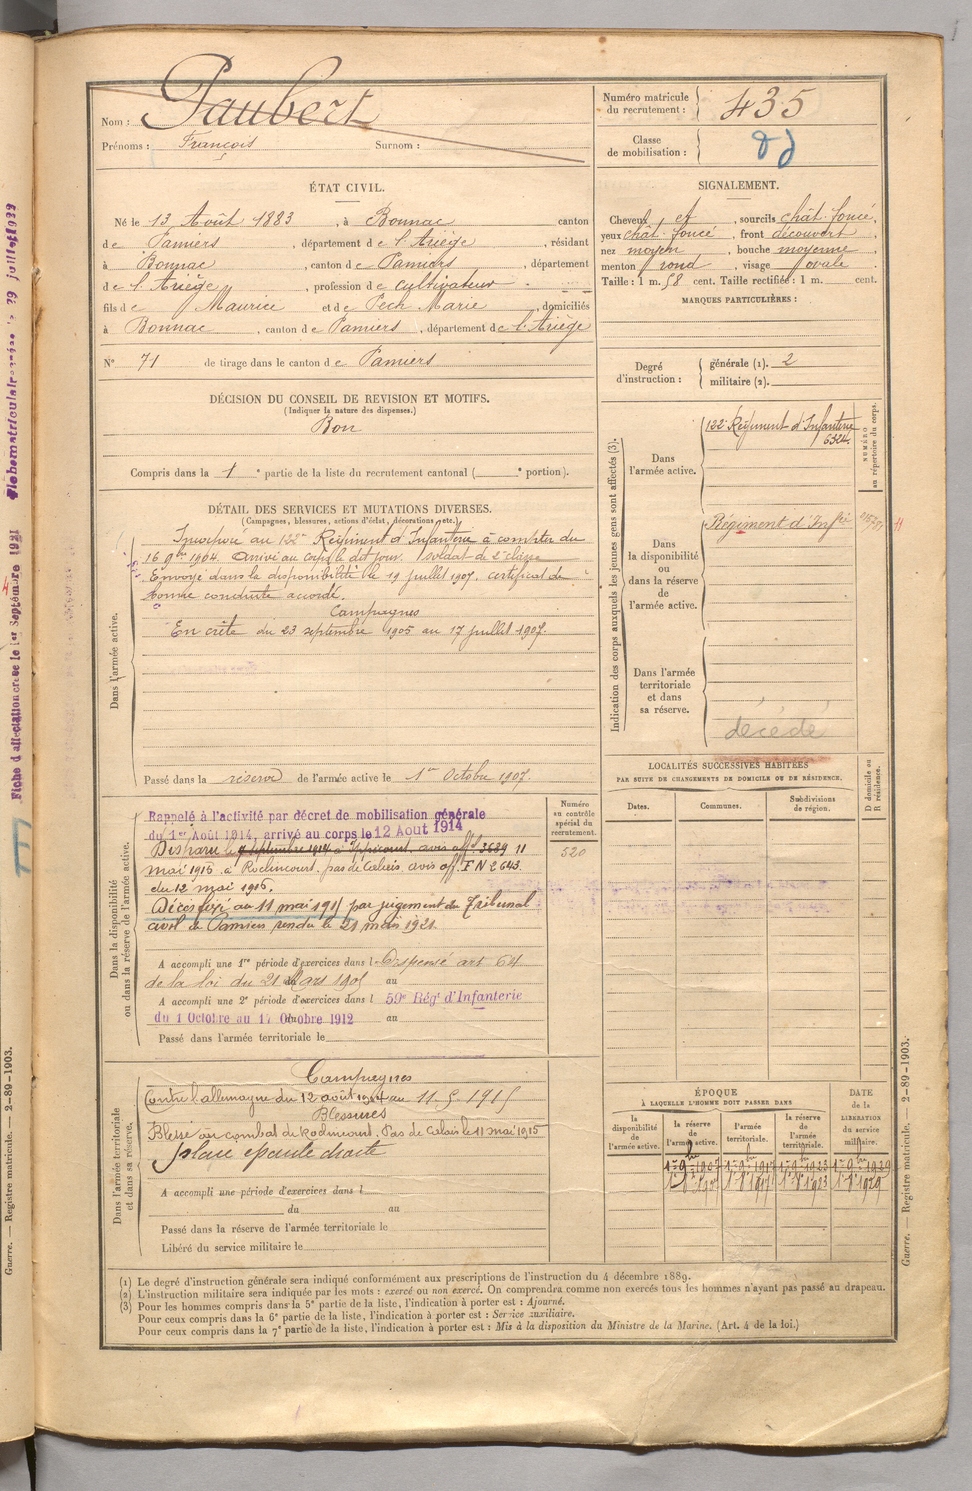 Nom : Paubert
Prénoms : François Surnom :
Numéro matricule du recrutement : 435
Classe de mobilisation :
ÉTAT CIVIL.
Né le 13 Août 1883, à Bonnac canton
de Pamiers, département de l'Ariège, résidant
à Bonnac, canton de Pamiers, département
de l'Ariège, profession de cultivateur
fils de Maurice et de Pech Marie, domiciliés
à Bonnac, canton de Pamiers, département de l'Ariège
N° 71 de tirage dans le canton de Pamiers
SIGNALEMENT.
Cheveux et, sourcils chât. foncé,
yeux chât. foncé, front découvert,
nez moyen, bouche moyenne,
menton rond, visage ovale
Taille : 1 m. 58 cent. Taille rectifiée : 1 m. cent.
MARQUES PARTICULIÈRES :
Degré d'instruction : générale (1). 2
militaire (2).
DÉCISION DU CONSEIL DE REVISION ET MOTIFS.
(Indiquer la nature des dispenses.)
Bon
Compris dans la 1 e partie de la liste du recrutement cantonal ( e portion).
DÉTAIL DES SERVICES ET MUTATIONS DIVERSES.
(Campagnes, blessures, actions d'éclat, décorations, etc.)
Dans l'armée active.
Incorporé au 122e Régiment d'Infanterie à compter du
16 9bre 1904. Arrivé au corps le dit jour. Soldat de 2e classe
Envoyé dans la disponibilité le 19 juillet 1907. certificat de
bonne conduite accordé.
Campagnes
En crète du 23 septembre 1905 au 17 juillet 1907.
Passé dans la réserve de l'armée active le 1er Octobre 1907.
Indication des corps auxquels les jeunes gens sont affectés (3).
NUMÉRO au répertoire du corps.
Dans l'armée active.
122e Régiment d'Infanterie
6324
Dans la disponibilité ou dans la réserve de l'armée active.
Régiment d'Infie
Dans l'armée territoriale et dans sa réserve.
décédé
LOCALITÉS SUCCESSIVES HABITÉES
PAR SUITE DE CHANGEMENTS DE DOMICILE OU DE RÉSIDENCE.
Dates. Communes. Subdivisions de région. D domicile ou R résidence.
Dans la disponibilité ou dans la réserve de l'armée active.
Numéro au contrôle spécial du recrutement.
520
Rappelé à l'activité par décret de mobilisation générale
du 1er Août 1914, arrivé au corps le 12 Aout 1914
Disparu le septembre 1914 à avis off. 3689 11
mai 1915 à Roclincourt, pas de Calais, avis off. F N 2643.
du 12 mai 1916.
Décès fixé au 11 mai 1915 par jugement du Tribunal
civil de Pamiers rendu le 21 mars 1921.
A accompli une 1re période d'exercices dans l Dispensé art 64
de la loi du 21 Mars 1905 au
A accompli une 2e période d'exercices dans l 59e Régt d'Infanterie
du 1 Octobre au 17 Octobre 1912 au
Passé dans l'armée territoriale le
Dans l'armée territoriale et dans sa réserve.
Campagnes
Contre l'allemagne du 12 août 1914 au 11-5-1915
Blessures
Blessé au combat de Roclincourt. Pas de Calais le 11 mai 1915
plaie épaule droite
A accompli une période d'exercices dans l
du au
Passé dans la réserve de l'armée territoriale le
Libéré du service militaire le
ÉPOQUE
À LAQUELLE L'HOMME DOIT PASSER DANS
la disponibilité de l'armée active. la réserve de l'armée active. l'armée territoriale. la réserve de l'armée territoriale. DATE de la LIBÉRATION du service militaire.
(1) Le degré d'instruction générale sera indiqué conformément aux prescriptions de l'instruction du 4 décembre 1889.
(2) L'instruction militaire sera indiquée par les mots : exercé ou non exercé. On comprendra comme non exercés tous les hommes n'ayant pas passé au drapeau.
(3) Pour les hommes compris dans la 5e partie de la liste, l'indication à porter est : Ajourné.
Pour ceux compris dans la 6e partie de la liste, l'indication à porter est : Service auxiliaire.
Pour ceux compris dans la 7e partie de la liste, l'indication à porter est : Mis à la disposition du Ministre de la Marine. (Art. 4 de la loi.)
Guerre. — Registre matricule. — 2-89-1903.
Guerre. — Registre matricule. — 2-89-1903.